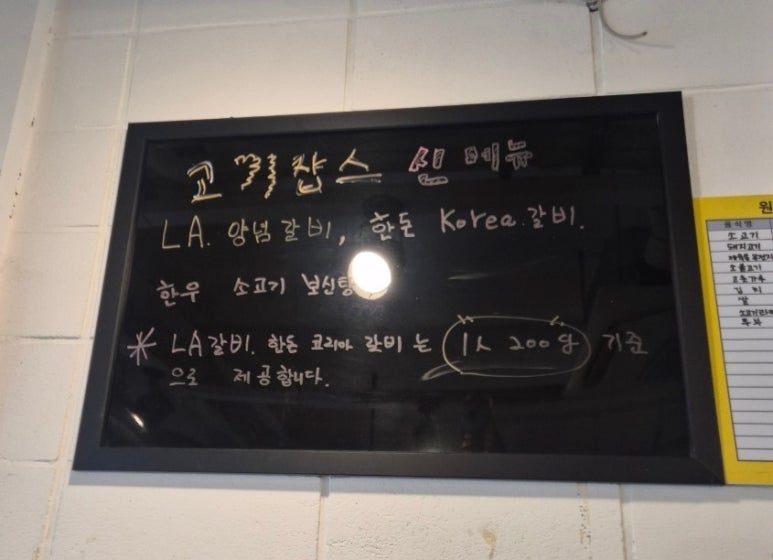 고객찬스 신메뉴
LA. 양념갈비, 한돈 Korea.갈비.
한우 소고기 보신탕
* LA갈비. 한돈 코리아 갈비는 1人 200g 기준
으로 제공합니다.
원
음식명
소고기
돼지고기
소불고기
고춧가루
김치
쌀
두부